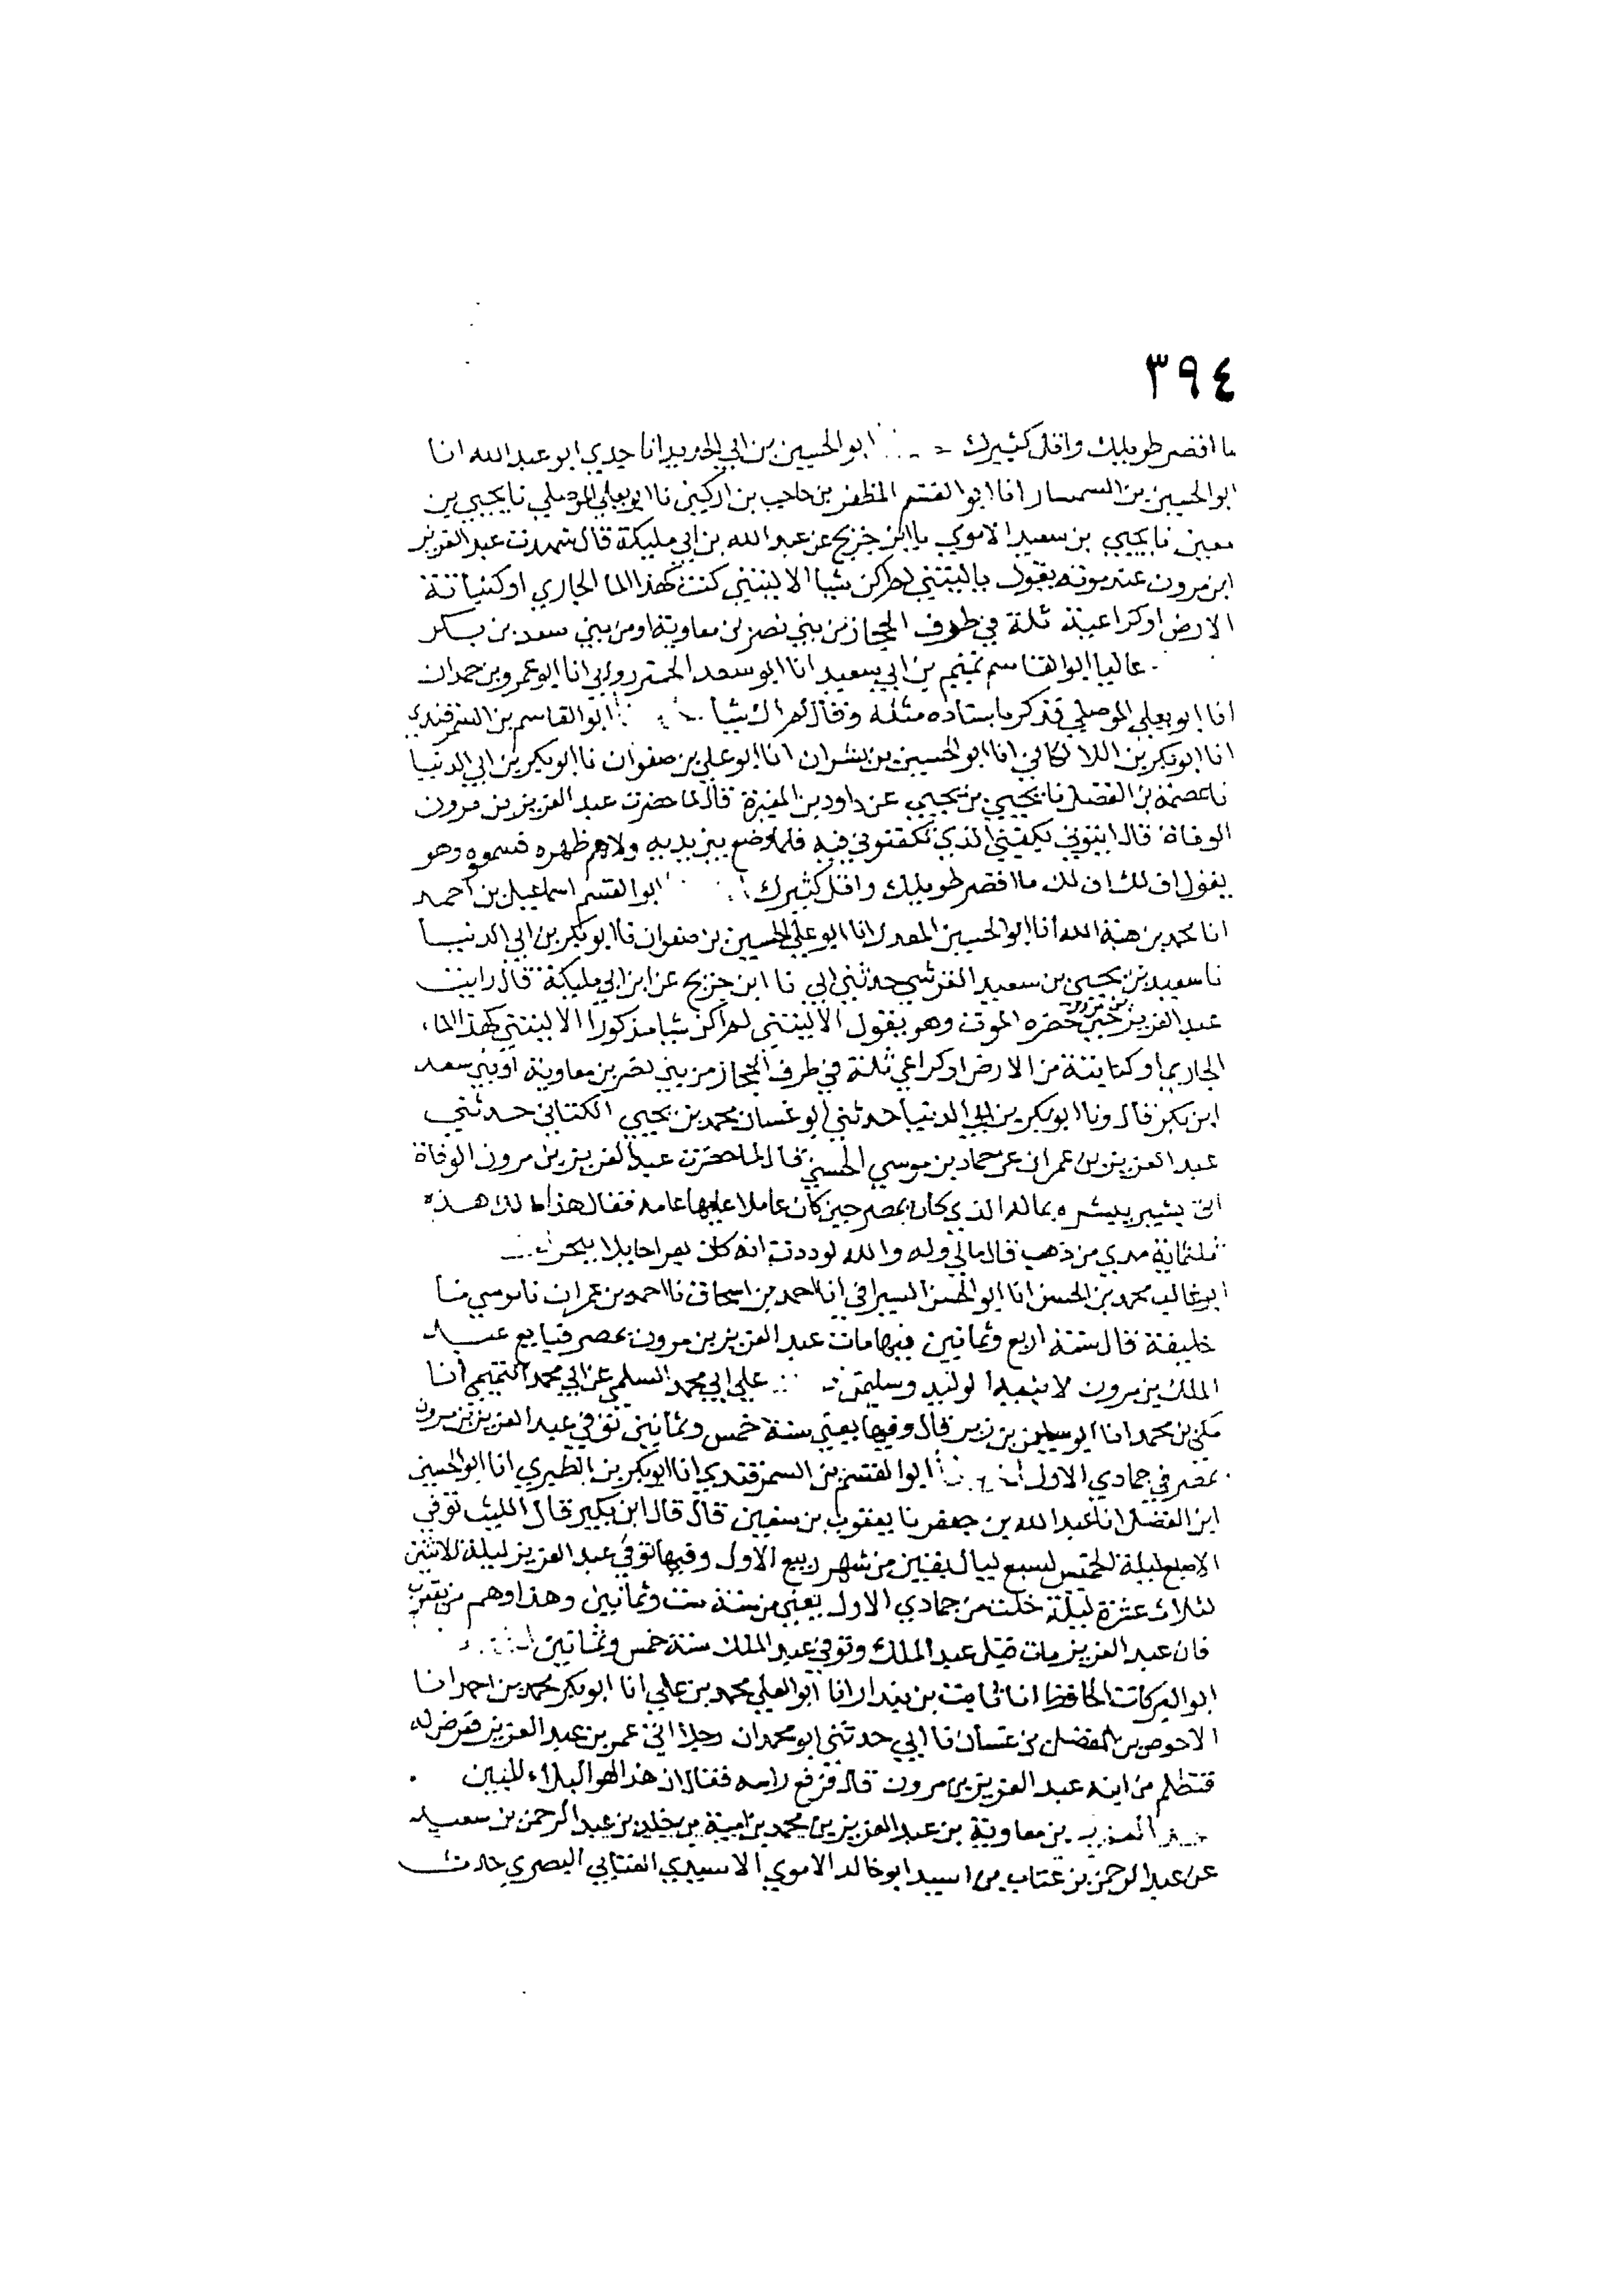 ٣٩٤
ما اقصر طويلك واقل كثيرك ابو الحسين بن ابي الحديد انا جدي ابو عبد الله انا
ابو الحسين بن السمسار انا ابو القسم المظفر بن حاجب بن اركين نا ابو يعلي الموصلي نا يحيي بن
معين نا يحيي بن سعيد الاموي نا ابن جريج عن عبد الله بن ابي مليكة قال شهدت عبد العزيز
ابن مرون عند موته يقول ياليتني لم اكن شيا الا ليتني كنت كهذا الما الجاري او كنباتة
الارض او كراعية ثلة في طرف الحجاز من بني نصر بن معاوية او من بني سعد بن بكر
عاليا ابو القاسم تميم بن ابي سعيد انا ابو سعد الجنزرودي انا ابو عمرو بن حمدان
انا ابو يعلي الموصلي فذكر باسناده مثله وقال لم اك شيا ابو القاسم بن السمرقندي
انا ابو بكر بن اللالكائي انا ابو الحسين بن بشران انا ابو علي بن صفوان نا ابو بكر بن ابي الدنيا
نا عصمة بن الفضل نا يحيي بن يحيي عن داود بن المغيرة قال لما حضرت عبد العزيز بن مرون
الوفاة قال ايتوني بكفني الذي تكفنوني فيه فلما وضع بين يديه ولاهم ظهره فسمعوه وهو
يقول اف لك اف لك ما اقصر طويلك واقل كثيرك ابو القسم اسماعيل بن احمد
انا محمد بن هبة الله انا ابو الحسين المعدل انا ابو علي الحسين بن صفوان نا ابو بكر بن ابي الدنيا
نا سعيد بن يحيي بن سعيد القرشي حدثني ابي نا ابن جريج عن ابن ابي مليكة قال رايت
عبد العزيز بن مرون حين حضره الموت وهو يقول الا ليتني لم اكن شيا مذكورا الا ليتني كهذا الماء
الجاري او كنابتة من الارض او كراعي ثلة في طرف الحجاز من بني نصر بن معاوية او بني سعد
ابن بكر قال ونا ابو بكر بن ابي الدنيا حدثني ابو غسان محمد بن يحيي الكناني حدثني
عبد العزيز بن عمران عن حماد بن موسي الحسني قال لما حضرت عبد العزيز بن مرون الوفاة
اتي بشير يبشره بماله الذي كان بمصر حين كان عاملا عليها عامه فقال هذا مالك هذه
ثلثماية مدي من ذهب قال مالي وله والله لوددت انه كان بعرا حايلا بنجد
ابو غالب محمد بن الحسن انا ابو الحسن السيرافي انا احمد بن اسحاق نا احمد بن عمران نا موسي نا
خليفة قال سنة اربع وثمانين فيها مات عبد العزيز بن مرون بمصر فبايع عبد
الملك بن مرون لابنيه الوليد وسليمن علي ابي محمد السلمي عن ابي محمد التميمي انا
مكي بن محمد انا ابو سليمن بن زبر قال وفيها يعني سنة خمس وثمانين توفي عبد العزيز بن مرون
بمصر في جمادي الاول ابو القسم بن السمرقندي انا ابو بكر بن الطبري انا ابو الحسين
ابن الفضل انا عبد الله بن جعفر نا يعقوب بن سفين قال قال ابن بكير قال الليث توفي
الاصبع ليلة الخميس لسبع ليال بقين من شهر ربيع الاول وفيها توفي عبد العزيز ليلة الاثنين
لثلاث عشرة ليلة خلت من جمادي الاول يعني من سنة ست وثمانين وهذا وهم من يعقوب
فان عبد العزيز مات قبل عبد الملك وتوفي عبد الملك سنة خمس وثمانين
ابو البركات الحافظ انا ثابت بن بندار انا ابو العلي محمد بن علي انا ابو بكر محمد بن احمد انا
الاحوص بن المفضل بن غسان نا ابي حدثني ابو محمد ان رجلا اتي عمر بن عبد العزيز فعرض له
فتظلم من ابيه عبد العزيز بن مرون قال فرفع راسه فقال ان هذا لهو البلاء المبين
بن معاوية بن عبد العزيز بن محمد بن امية بن خلد بن عبد الرحمن بن سعيد
عن عبد الرحمن بن عتاب بن اسيد ابو خالد الاموي الاسيدي العتابي البصري حدث